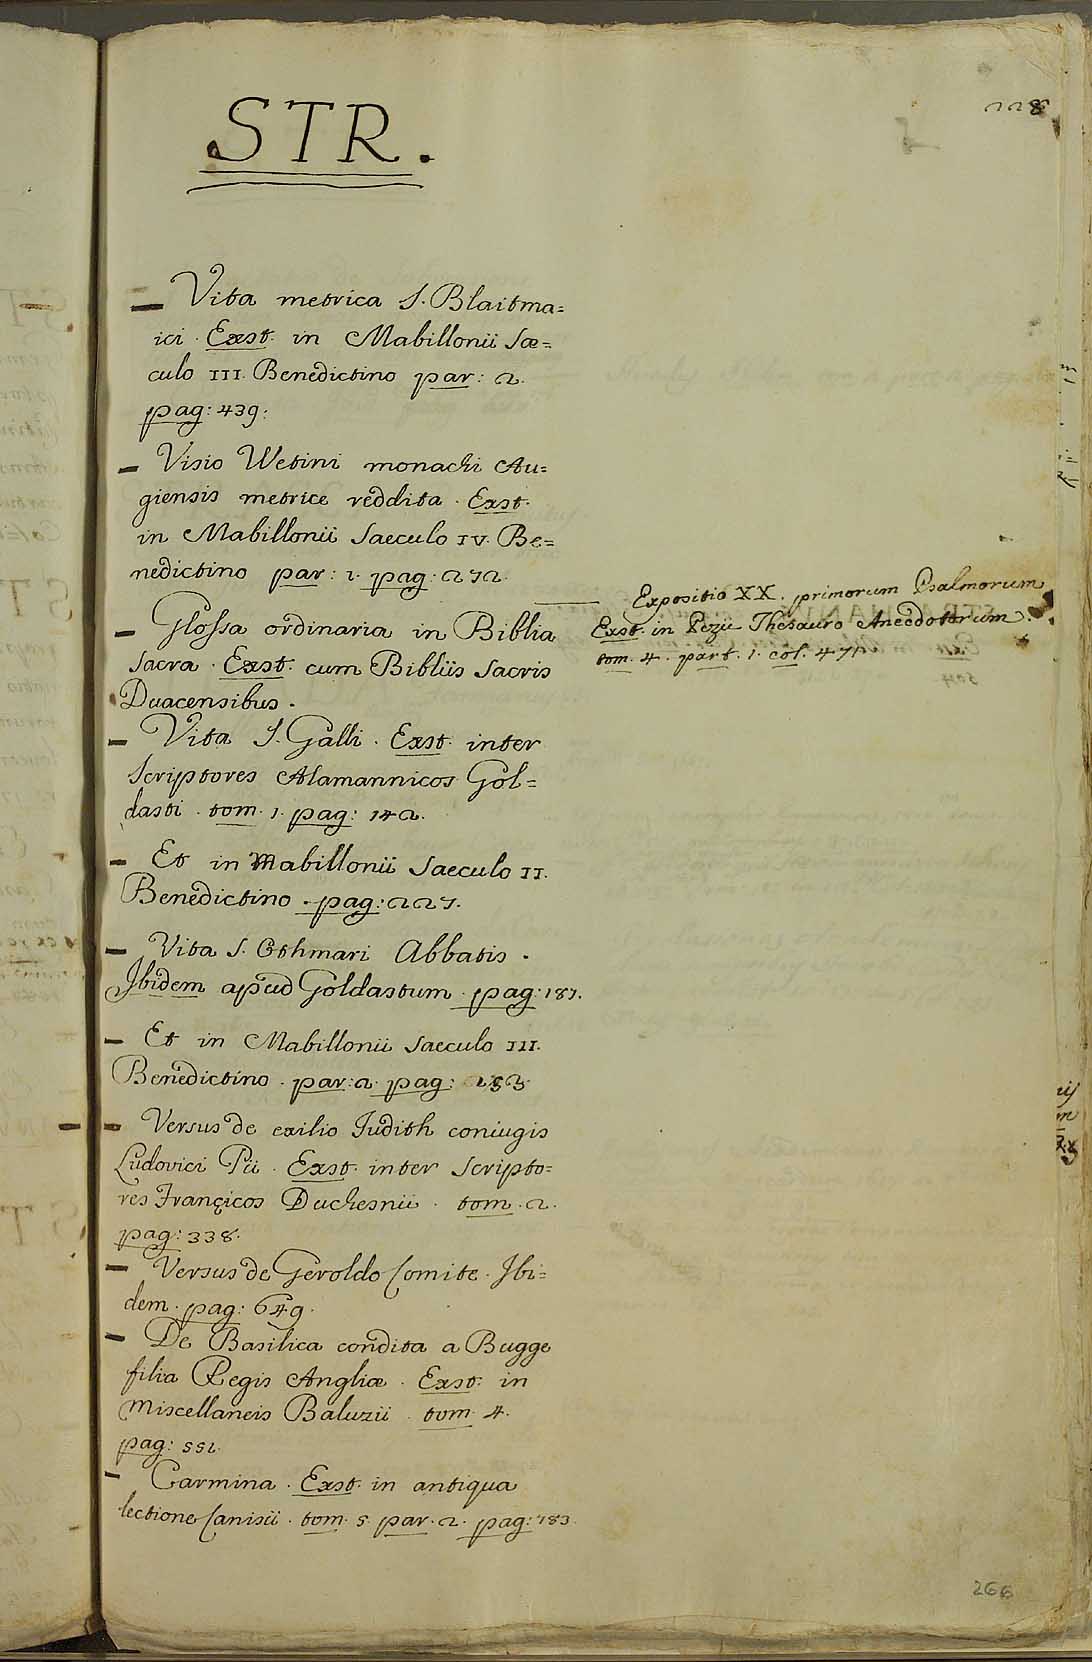 228
STR.
— Vita metrica S. Blaitma=
ici. Exst. in Mabillonii Sæ=
culo III. Benedictino par: 2.
pag: 439:
— Visio Wetini monachi Au=
giensis metrice reddita. Exst.
in Mabillonii Saeculo IV. Be=
nedictino par: 1. pag: 272.
— Glossa ordinaria in Biblia
Sacra. Exst. cum Bibliis Sacris
Duacensibus.
— Vita S. Galli. Exst. inter
Scriptores Alamannicos Gol=
dasti. tom. 1. pag: 142.
— Et in Mabillonii Saeculo II.
Benedictino. pag: 227.
— Vita S. Othmari Abbatis.
Ibidem apud Goldastum. pag: 187.
— Et in Mabillonii Saeculo III.
Benedictino. par: 2. pag:
— Versus de exilio Iudith coniugis
Ludovici Pii. Exst. inter Scripto=
res Françicos Duchesnii. tom. 2.
pag: 338.
— Versus de Geroldo Comite. Ibi=
dem. pag: 649.
— De Basilica condita a Bugge
filia Regis Angliæ. Exst. in
Miscellaneis Baluzii. tom. 4.
pag: 551.
— Carmina. Exst. in antiqua
lectione Canisii. tom. 5. par. 2. pag: 183.
— Expositio XX. primorum Psalmorum
Exst. in Pezii Thesauro Anecdotorum.
tom. 4. part. 1. col. 471.
266